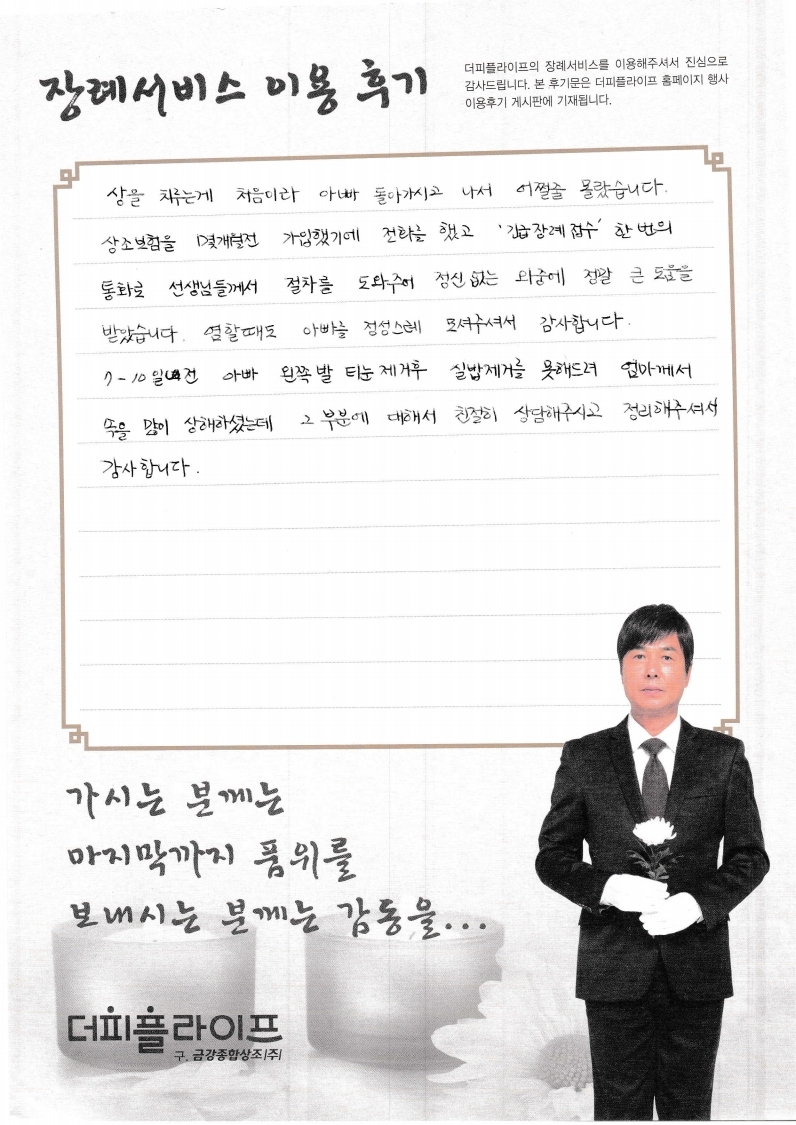 장례서비스 이용 후기
더피플라이프의 장례서비스를 이용해주셔서 진심으로
감사드립니다. 본 후기문은 더피플라이프 홈페이지 행사
이용후기 게시판에 기재됩니다.
상을 치루는게 처음이라 아빠 돌아가시고 나서 어쩔줄 몰랐습니다.
상조보험을 몇개월전 가입했기에 전화를 했고 '긴급장례접수' 한 번의
통화로 선생님들께서 절차를 도와주어 정신없는 와중에 정말 큰 도움을
받았습니다. 염할때도 아빠를 정성스레 모셔주셔서 감사합니다.
7-10일전 아빠 왼쪽발 티눈제거후 실밥제거를 못해드려 엄마께서
속을 많이 상해하셨는데 그 부분에 대해서 친절히 상담해주시고 정리해주셔서
감사합니다.
가시는 분께는
마지막까지 품위를
보내시는 분께는 감동을...
더피플라이프
구. 금강종합상조(주)